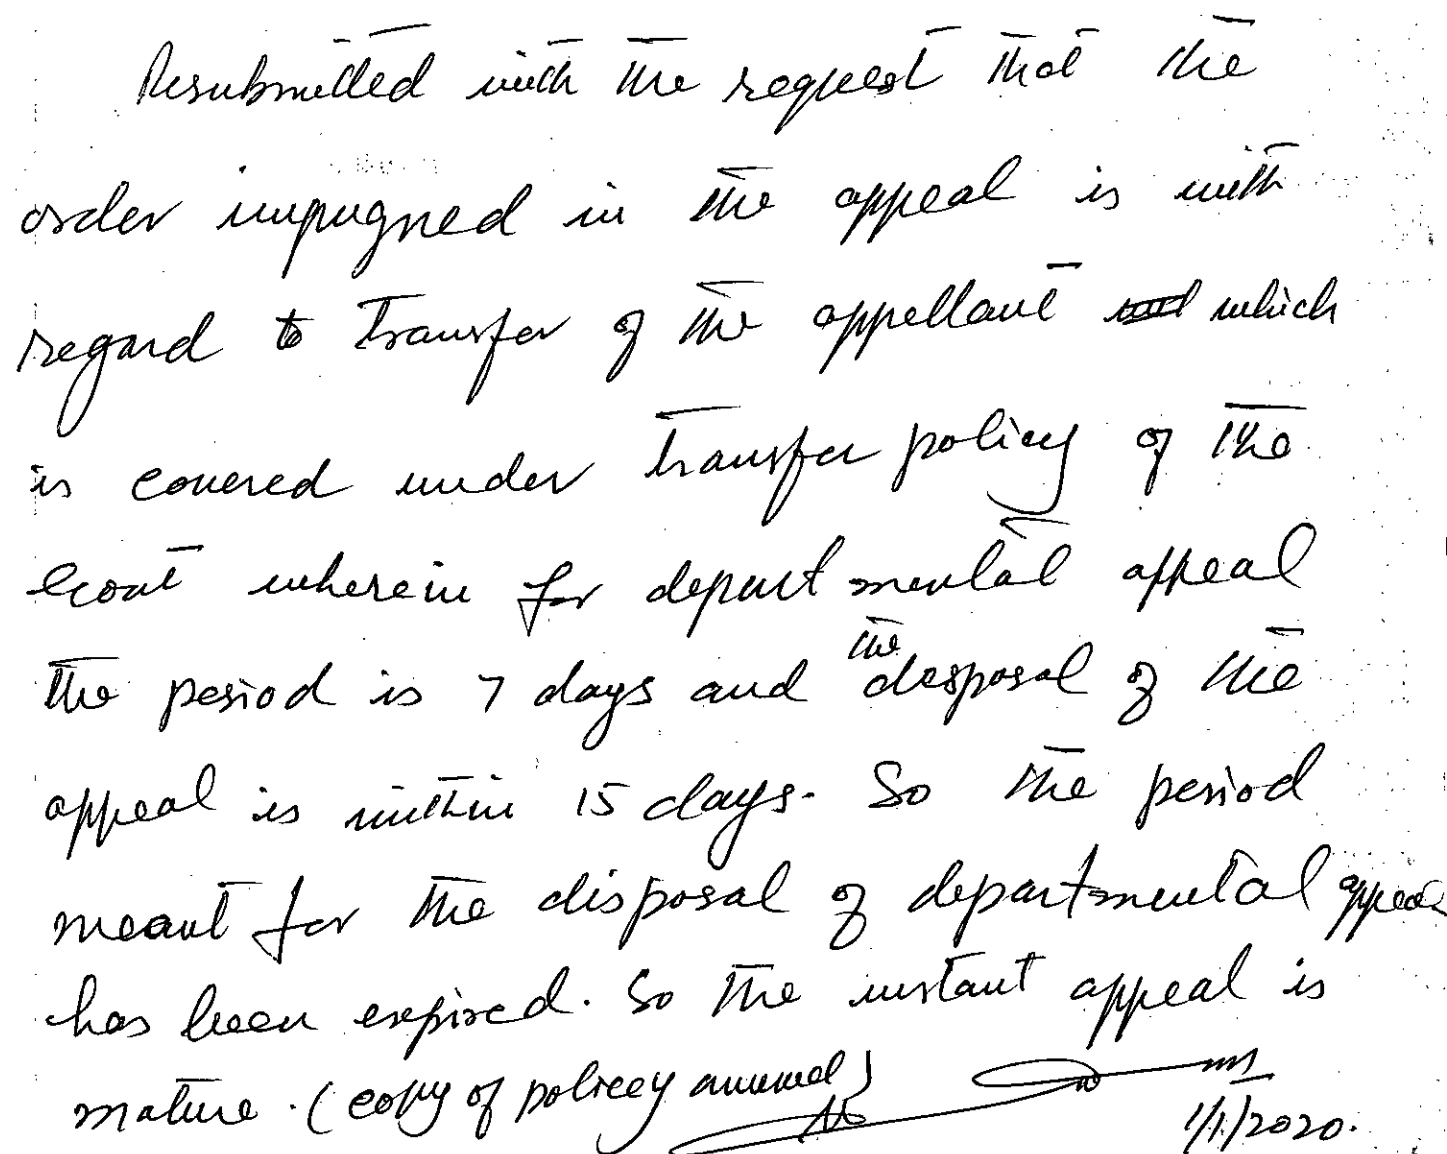 Resubmitted with the request that the
order impugned in the appeal is with
regard to transfer of the appellant which
is covered under transfer policy of the
Govt wherein for departmental appeal
the period is 7 days and the disposal of the
appeal is within 15 days. So the period
meant for the disposal of departmental appeal
has been expired. So the instant appeal is
mature. (copy of policey annexed)
1/1/2020.